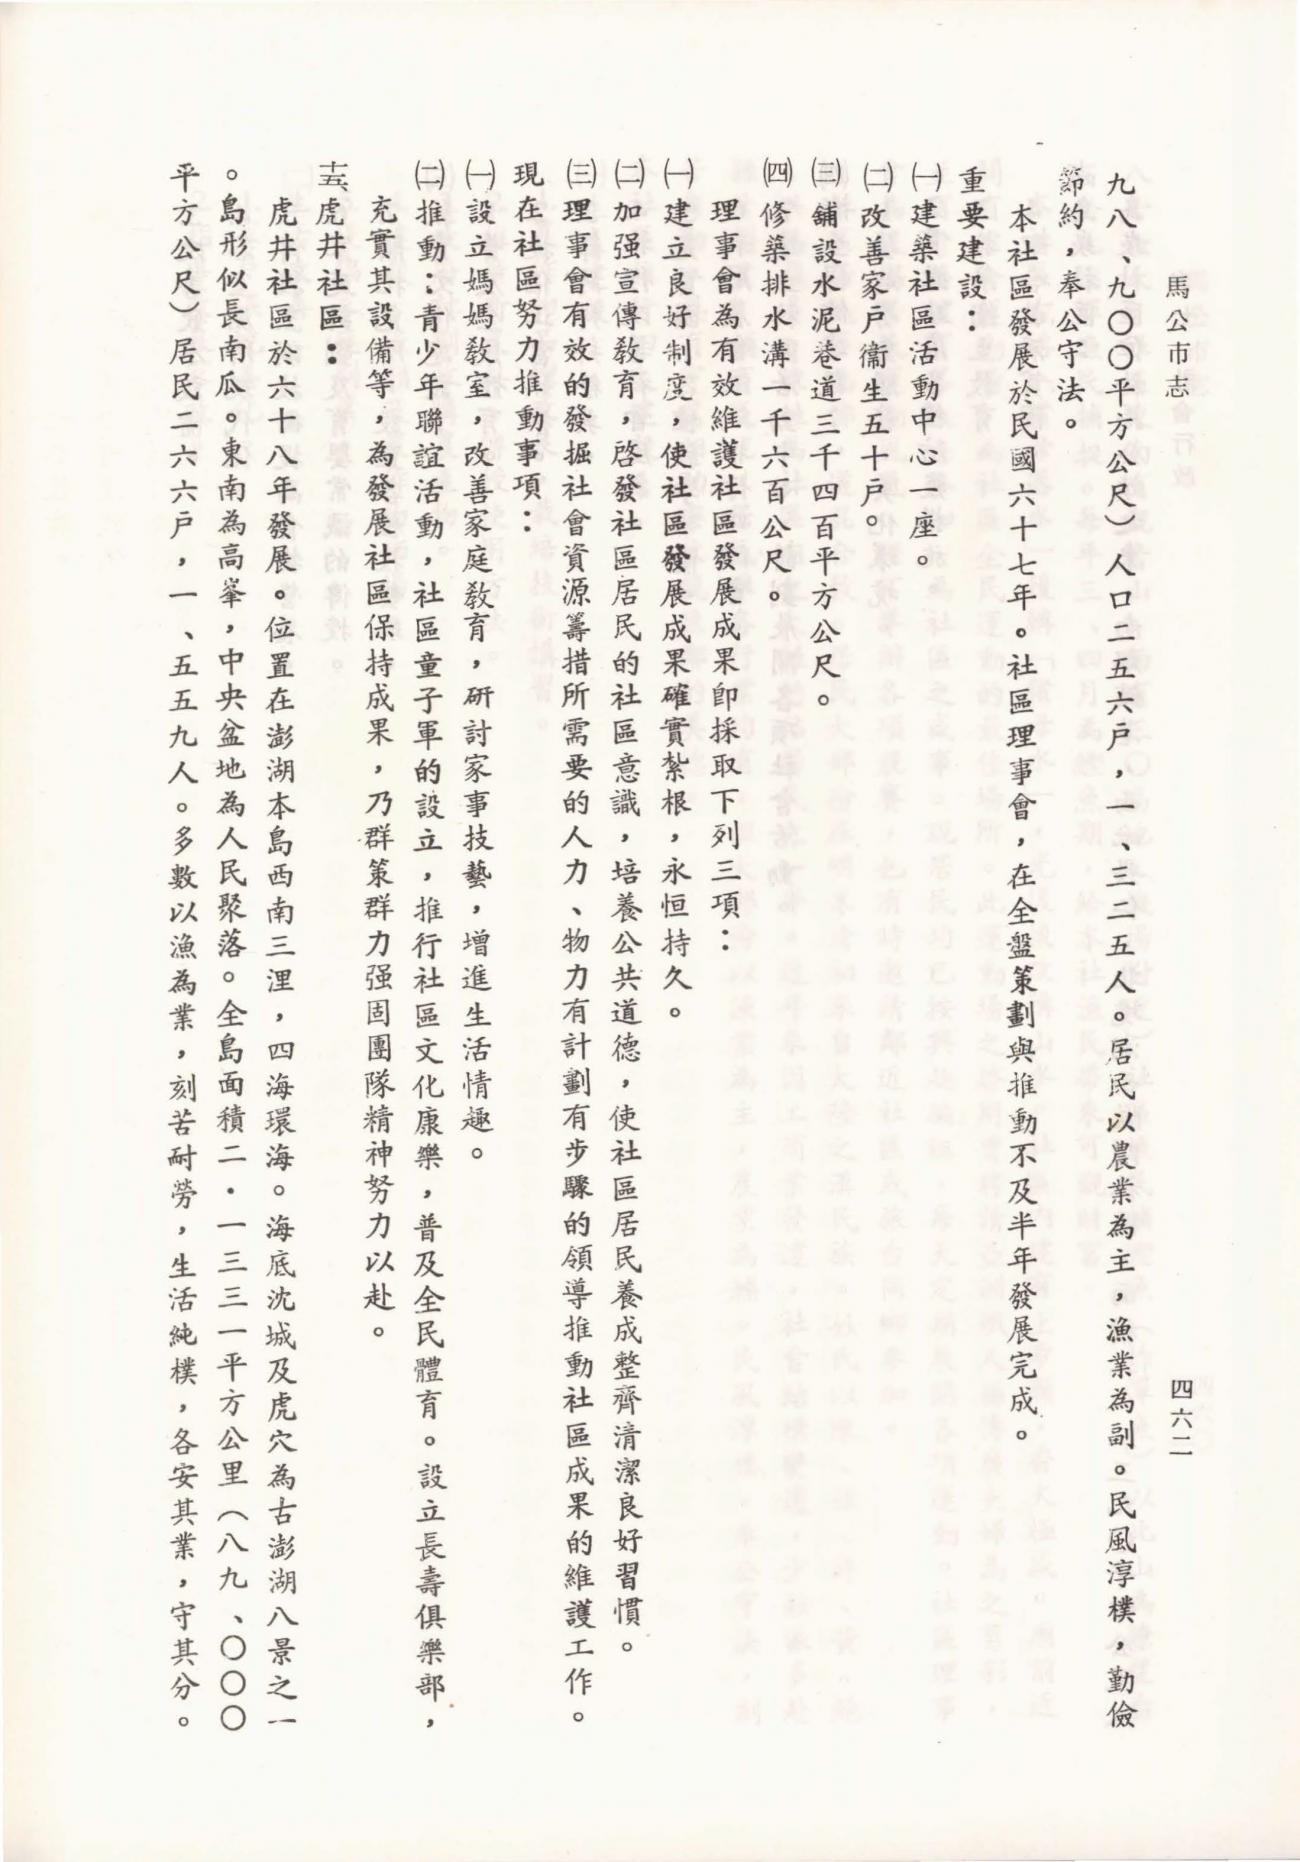 馬公市志
四六二
九八、九〇〇平方公尺）人口二五六戶，一、三二五人。居民以農業為主，漁業為副。民風淳樸，勤儉
節約，奉公守法。
本社區發展於民國六十七年。社區理事會，在全盤策劃與推動不及半年發展完成。
重要建設：
㈠建築社區活動中心一座。
㈡改善家戶衞生五十戶。
㈢舖設水泥巷道三千四百平方公尺。
㈣修築排水溝一千六百公尺。
理事會為有效維護社區發展成果即採取下列三項：
㈠建立良好制度，使社區發展成果確實紮根，永恒持久。
㈡加强宣傳敎育，啓發社區居民的社區意識，培養公共道德，使社區居民養成整齊清潔良好習慣。
㈢理事會有效的發掘社會資源籌措所需要的人力、物力有計劃有步驟的領導推動社區成果的維護工作。
現在社區努力推動事項：
㈠設立媽媽敎室，改善家庭敎育，研討家事技藝，增進生活情趣。
㈡推動：青少年聯誼活動，社區童子軍的設立，推行社區文化康樂，普及全民體育。設立長壽俱樂部，
充實其設備等，為發展社區保持成果，乃群策群力强固團隊精神努力以赴。
十五、虎井社區：
虎井社區於六十八年發展。位置在澎湖本島西南三浬，四海環海。海底沈城及虎穴為古澎湖八景之一
。島形似長南瓜。東南為高峯，中央盆地為人民聚落。全島面積二．一三三一平方公里（八九、〇〇〇
平方公尺）居民二六六戶，一、五五九人。多數以漁為業，刻苦耐勞，生活純樸，各安其業，守其分。